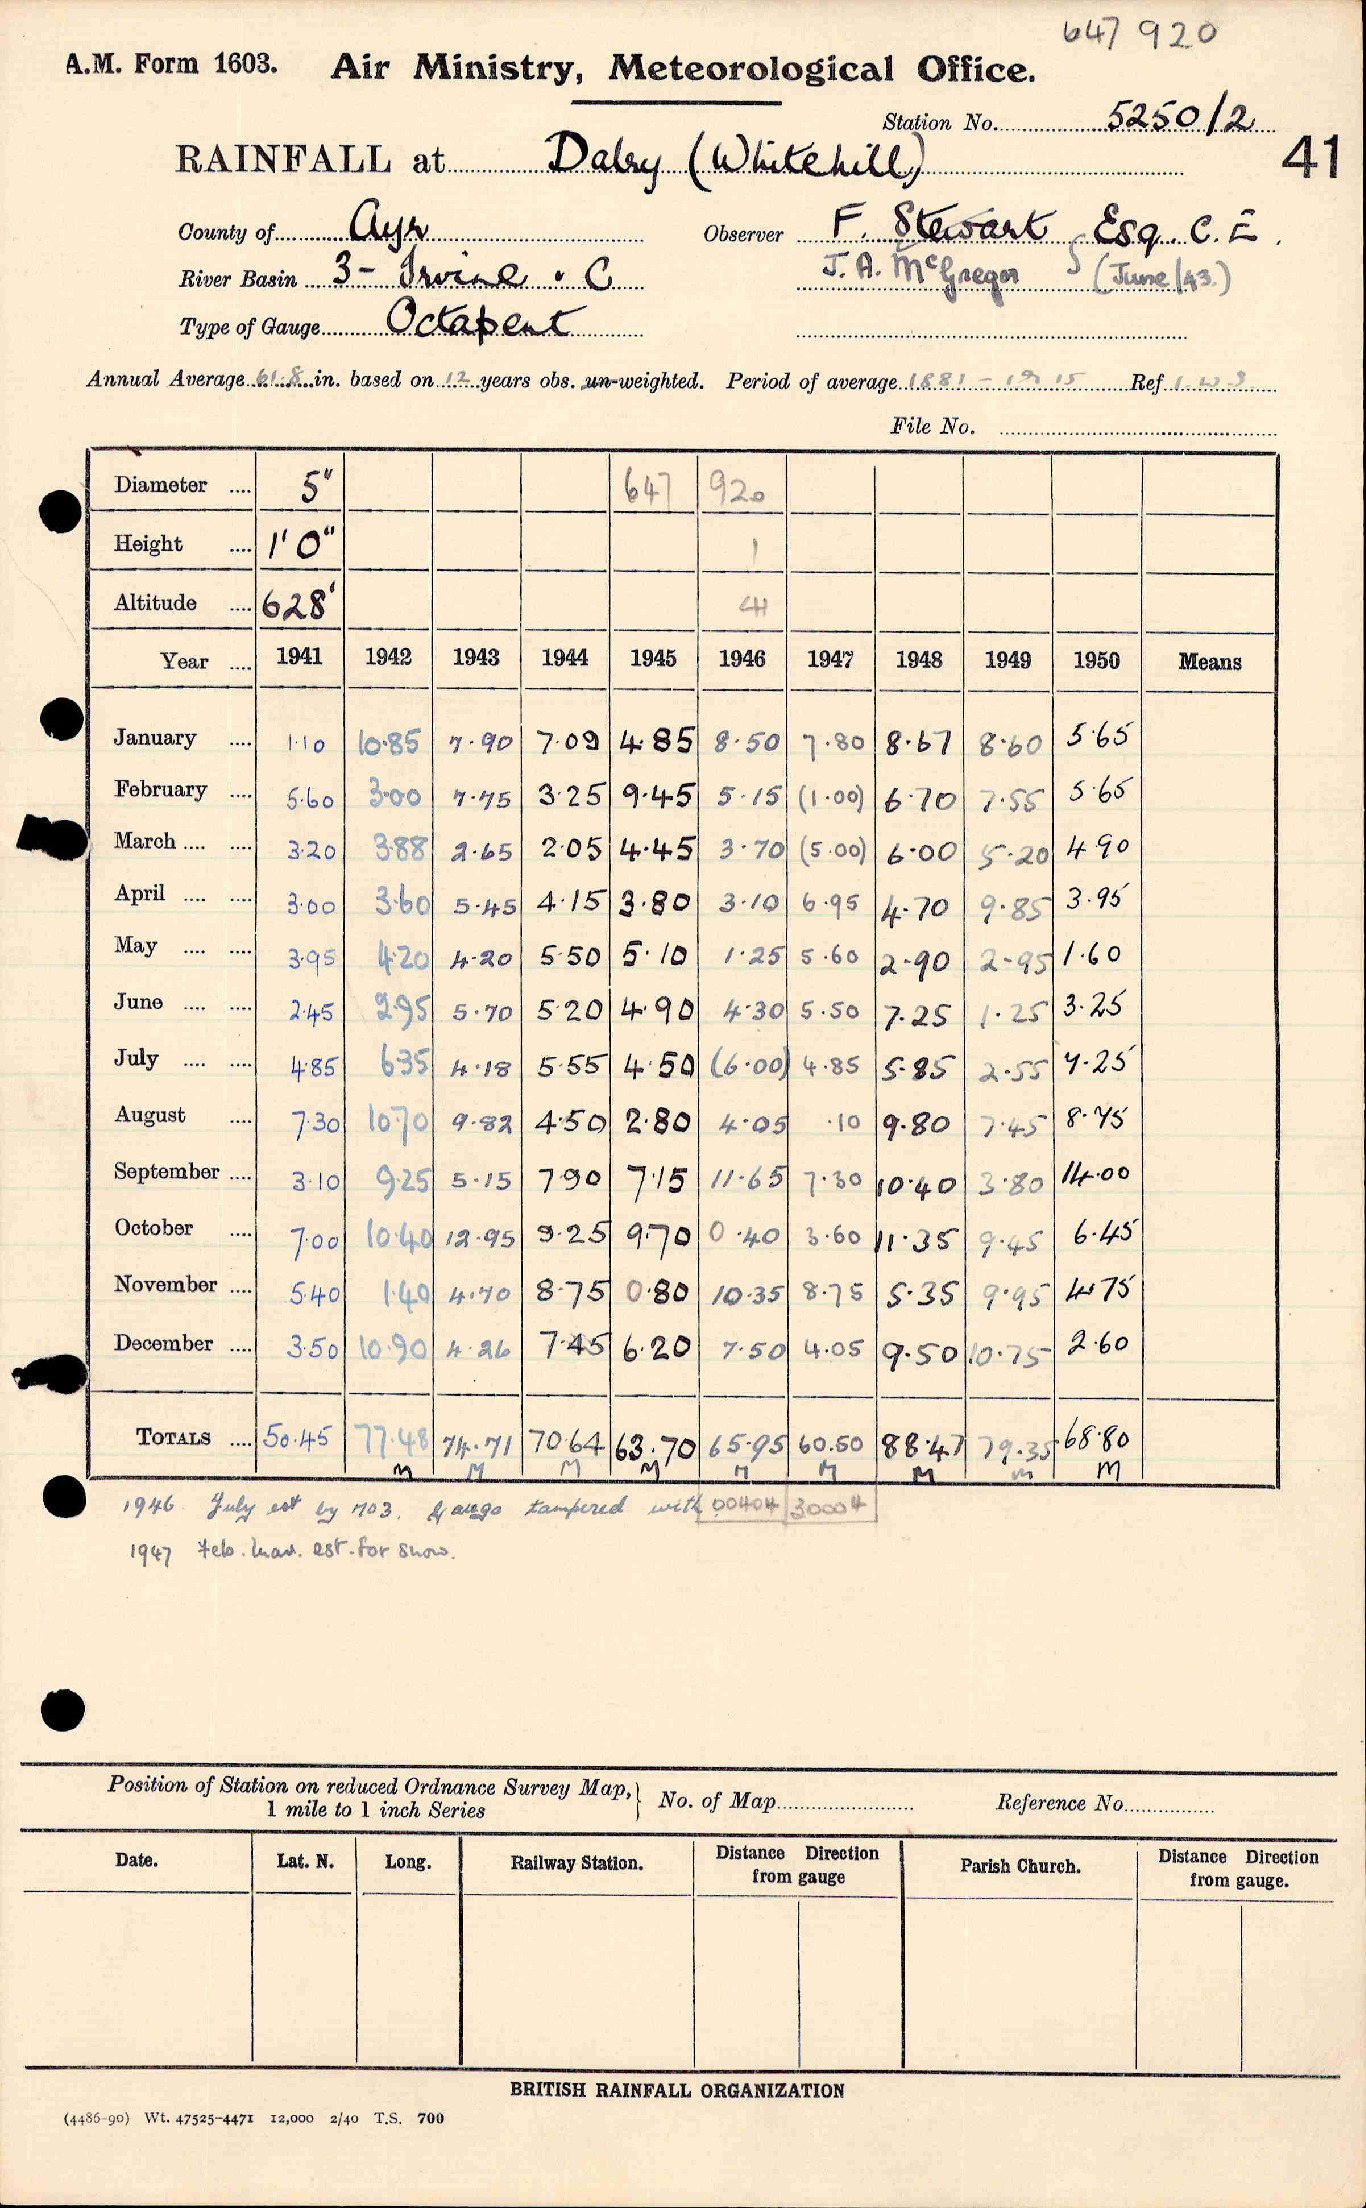 647 920
A.M. Form 1603. Air Ministry, Meteorological Office.
Station No. 5250/2
RAINFALL at Dalry (Whitehill)
41
County of Ayr Observer F. Stewart Esq. C.E.
River Basin 3 - Irvine . C J. A. McGregor (June/43.)
Type of Gauge Octapent
Annual Average 61.8 in. based on 12 years obs. un-weighted. Period of average 1881 - 1915 Ref
File No.
Diameter .... 5" 647 920
Height .... 1' 0" 1
Altitude .... 628' 41
Year .... 1941 1942 1943 1944 1945 1946 1947 1948 1949 1950 Means
January .... 1.10 10.85 7.90 7.09 4.85 8.50 7.80 8.67 8.60 5.65
February .... 5.60 3.00 7.75 3.25 9.45 5.15 (1.00) 6.70 7.55 5.65
March .... .... 3.20 3.88 2.65 2.05 4.45 3.70 (5.00) 6.00 5.20 4.90
April .... .... 3.00 3.60 5.45 4.15 3.80 3.10 6.95 4.70 9.85 3.95
May .... .... 3.95 4.20 4.20 5.50 5.10 1.25 5.60 2.90 2.95 1.60
June .... .... 2.45 2.95 5.70 5.20 4.90 4.30 5.50 7.25 1.25 3.25
July .... .... 4.85 6.35 4.18 5.55 4.50 (6.00) 4.85 5.85 2.55 7.25
August .... 7.30 10.70 9.82 4.50 2.80 4.05 .10 9.80 7.45 8.75
September .... 3.10 9.25 5.15 7.90 7.15 11.65 7.30 10.40 3.80 14.00
October .... 7.00 10.40 12.95 9.25 9.70 0.40 3.60 11.35 9.45 6.45
November .... 5.40 1.40 4.70 8.75 0.80 10.35 8.75 5.35 9.95 4.75
December .... 3.50 10.90 4.26 7.45 6.20 7.50 4.05 9.50 10.75 2.60
TOTALS .... 50.45 77.48 74.71 70.64 63.70 65.95 60.50 88.47 79.35 68.80
M M M M M M M M M
1946 July est by M03. Gauge tampered with 00404 30004
1947 Feb. Mar. est. for snow.
Position of Station on reduced Ordnance Survey Map, 1 mile to 1 inch Series } No. of Map Reference No.
Date. Lat. N. Long. Railway Station. Distance Direction from gauge Parish Church. Distance Direction from gauge.
BRITISH RAINFALL ORGANIZATION
(4486-90) Wt. 47525-4471 12,000 2/40 T.S. 700